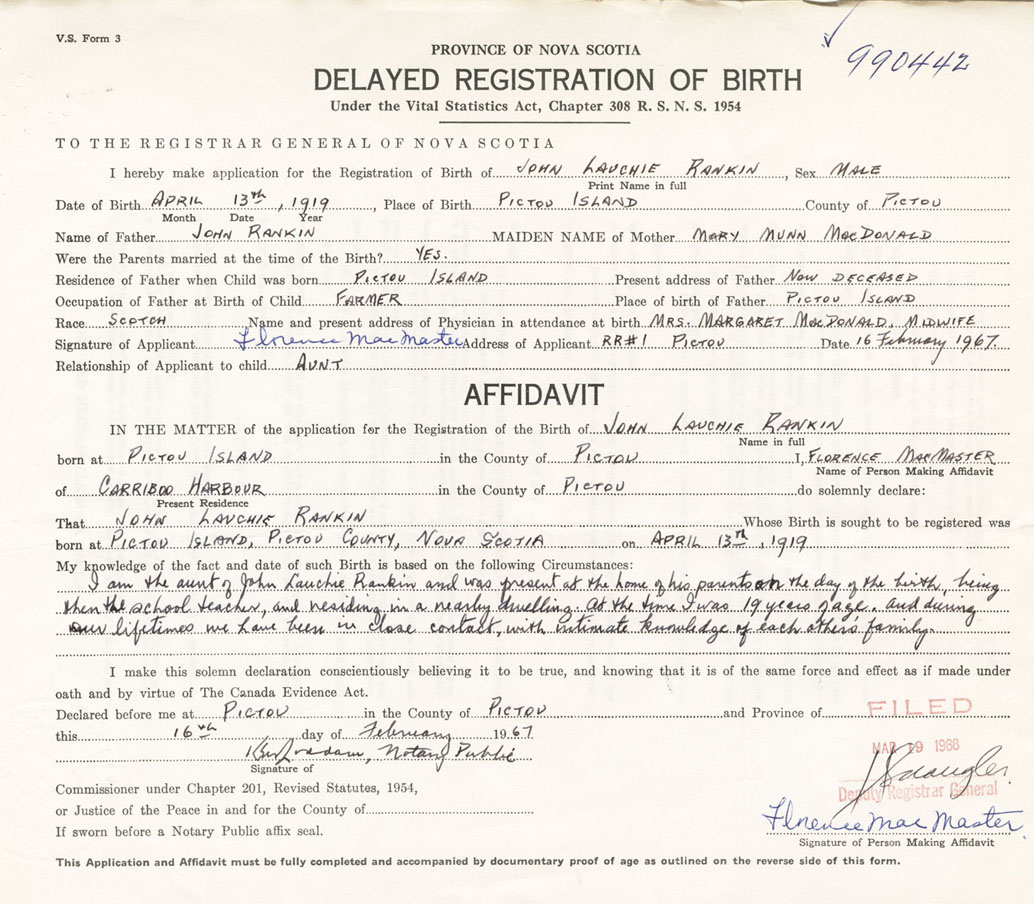 V.S. Form 3
990442
PROVINCE OF NOVA SCOTIA
DELAYED REGISTRATION OF BIRTH
Under the Vital Statistics Act, Chapter 308 R. S. N. S. 1954
TO THE REGISTRAR GENERAL OF NOVA SCOTIA
I hereby make application for the Registration of Birth of JOHN LAUCHIE RANKIN, Sex MALE
Print Name in full
Date of Birth APRIL 13th, 1919, Place of Birth PICTOU ISLAND County of PICTOU
Month Date Year
Name of Father JOHN RANKIN MAIDEN NAME of Mother MARY MUNN MACDONALD
Were the Parents married at the time of the Birth? YES.
Residence of Father when Child was born PICTOU ISLAND Present address of Father NOW DECEASED
Occupation of Father at Birth of Child FARMER Place of birth of Father PICTOU ISLAND
Race SCOTCH Name and present address of Physician in attendance at birth MRS. MARGARET MACDONALD, MIDWIFE
Signature of Applicant Florence MacMaster Address of Applicant RR#1 PICTOU Date 16 February 1967.
Relationship of Applicant to child AUNT
AFFIDAVIT
IN THE MATTER of the application for the Registration of the Birth of JOHN LAUCHIE RANKIN
Name in full
born at PICTOU ISLAND in the County of PICTOU I, FLORENCE MACMASTER
Name of Person Making Affidavit
of CARRIBOO HARBOUR in the County of PICTOU do solemnly declare:
Present Residence
That JOHN LAUCHIE RANKIN Whose Birth is sought to be registered was
born at PICTOU ISLAND, PICTOU COUNTY, NOVA SCOTIA on APRIL 13th, 1919
My knowledge of the fact and date of such Birth is based on the following Circumstances:
I am the aunt of John Lauchie Rankin and was present at the home of his parents on the day of the birth, being
then the school teacher, and residing in a nearby dwelling. At the time I was 19 years of age. and during
our lifetimes we have been in close contact, with intimate knowledge of each other's family.
I make this solemn declaration conscientiously believing it to be true, and knowing that it is of the same force and effect as if made under
oath and by virtue of The Canada Evidence Act.
Declared before me at PICTOU in the County of PICTOU and Province of
FILED
this 16th day of February 1967
MAR 29 1968
Notary Public
Signature of
Deputy Registrar General
Commissioner under Chapter 201, Revised Statutes, 1954,
or Justice of the Peace in and for the County of
Florence MacMaster
If sworn before a Notary Public affix seal.
Signature of Person Making Affidavit
This Application and Affidavit must be fully completed and accompanied by documentary proof of age as outlined on the reverse side of this form.